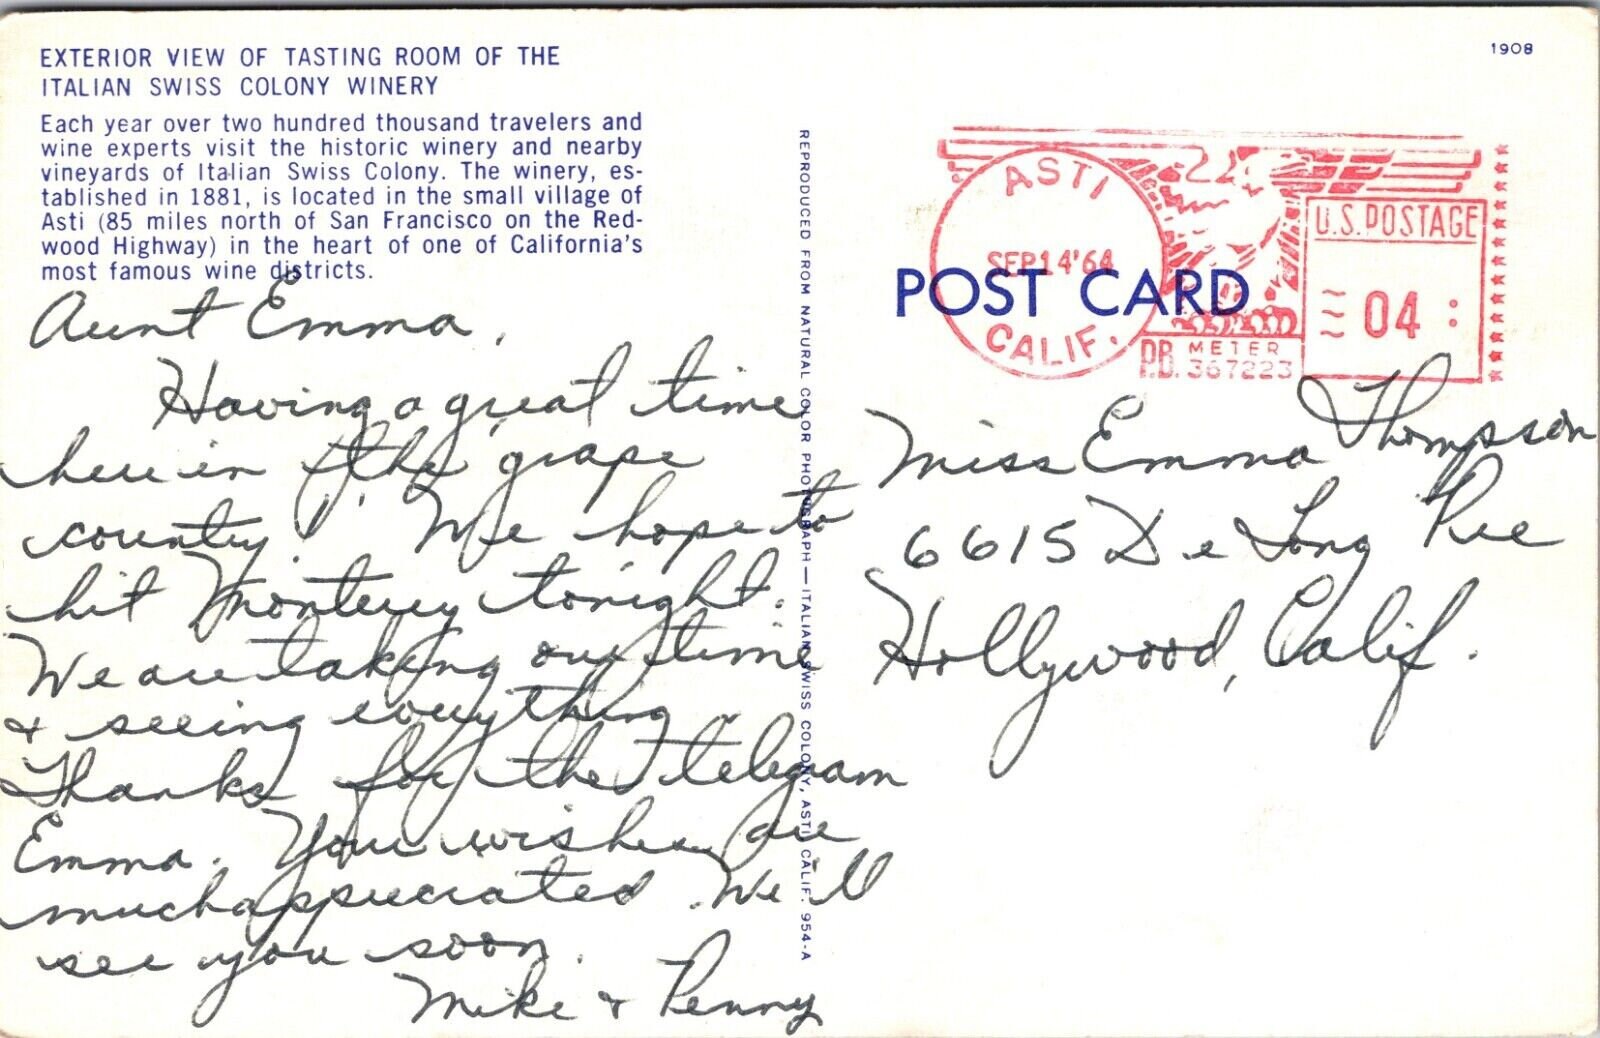 EXTERIOR VIEW OF TASTING ROOM OF THE
ITALIAN SWISS COLONY WINERY
Each year over two hundred thousand travelers and
wine experts visit the historic winery and nearby
vineyards of Italian Swiss Colony. The winery, es-
tablished in 1881, is located in the small village of
Asti (85 miles north of San Francisco on the Red-
wood Highway) in the heart of one of California's
most famous wine districts.
Aunt Emma,
Having a great time
here in the grape
country. We hope to
hit Monterey tonight.
We are taking our time
& seeing everything.
Thanks for the telegram
Emma. Your wishes are
much appreciated. We'll
see you soon.
Mike & Penny
REPRODUCED FROM NATURAL COLOR PHOTOGRAPH—ITALIAN SWISS COLONY, ASTI CALIF. 954-A
1908
ASTI
SEP 14 '64
CALIF.
U.S. POSTAGE
04
P.B. METER
367223
POST CARD
Miss Emma Thompson
6615 De Long Pre
Hollywood, Calif.